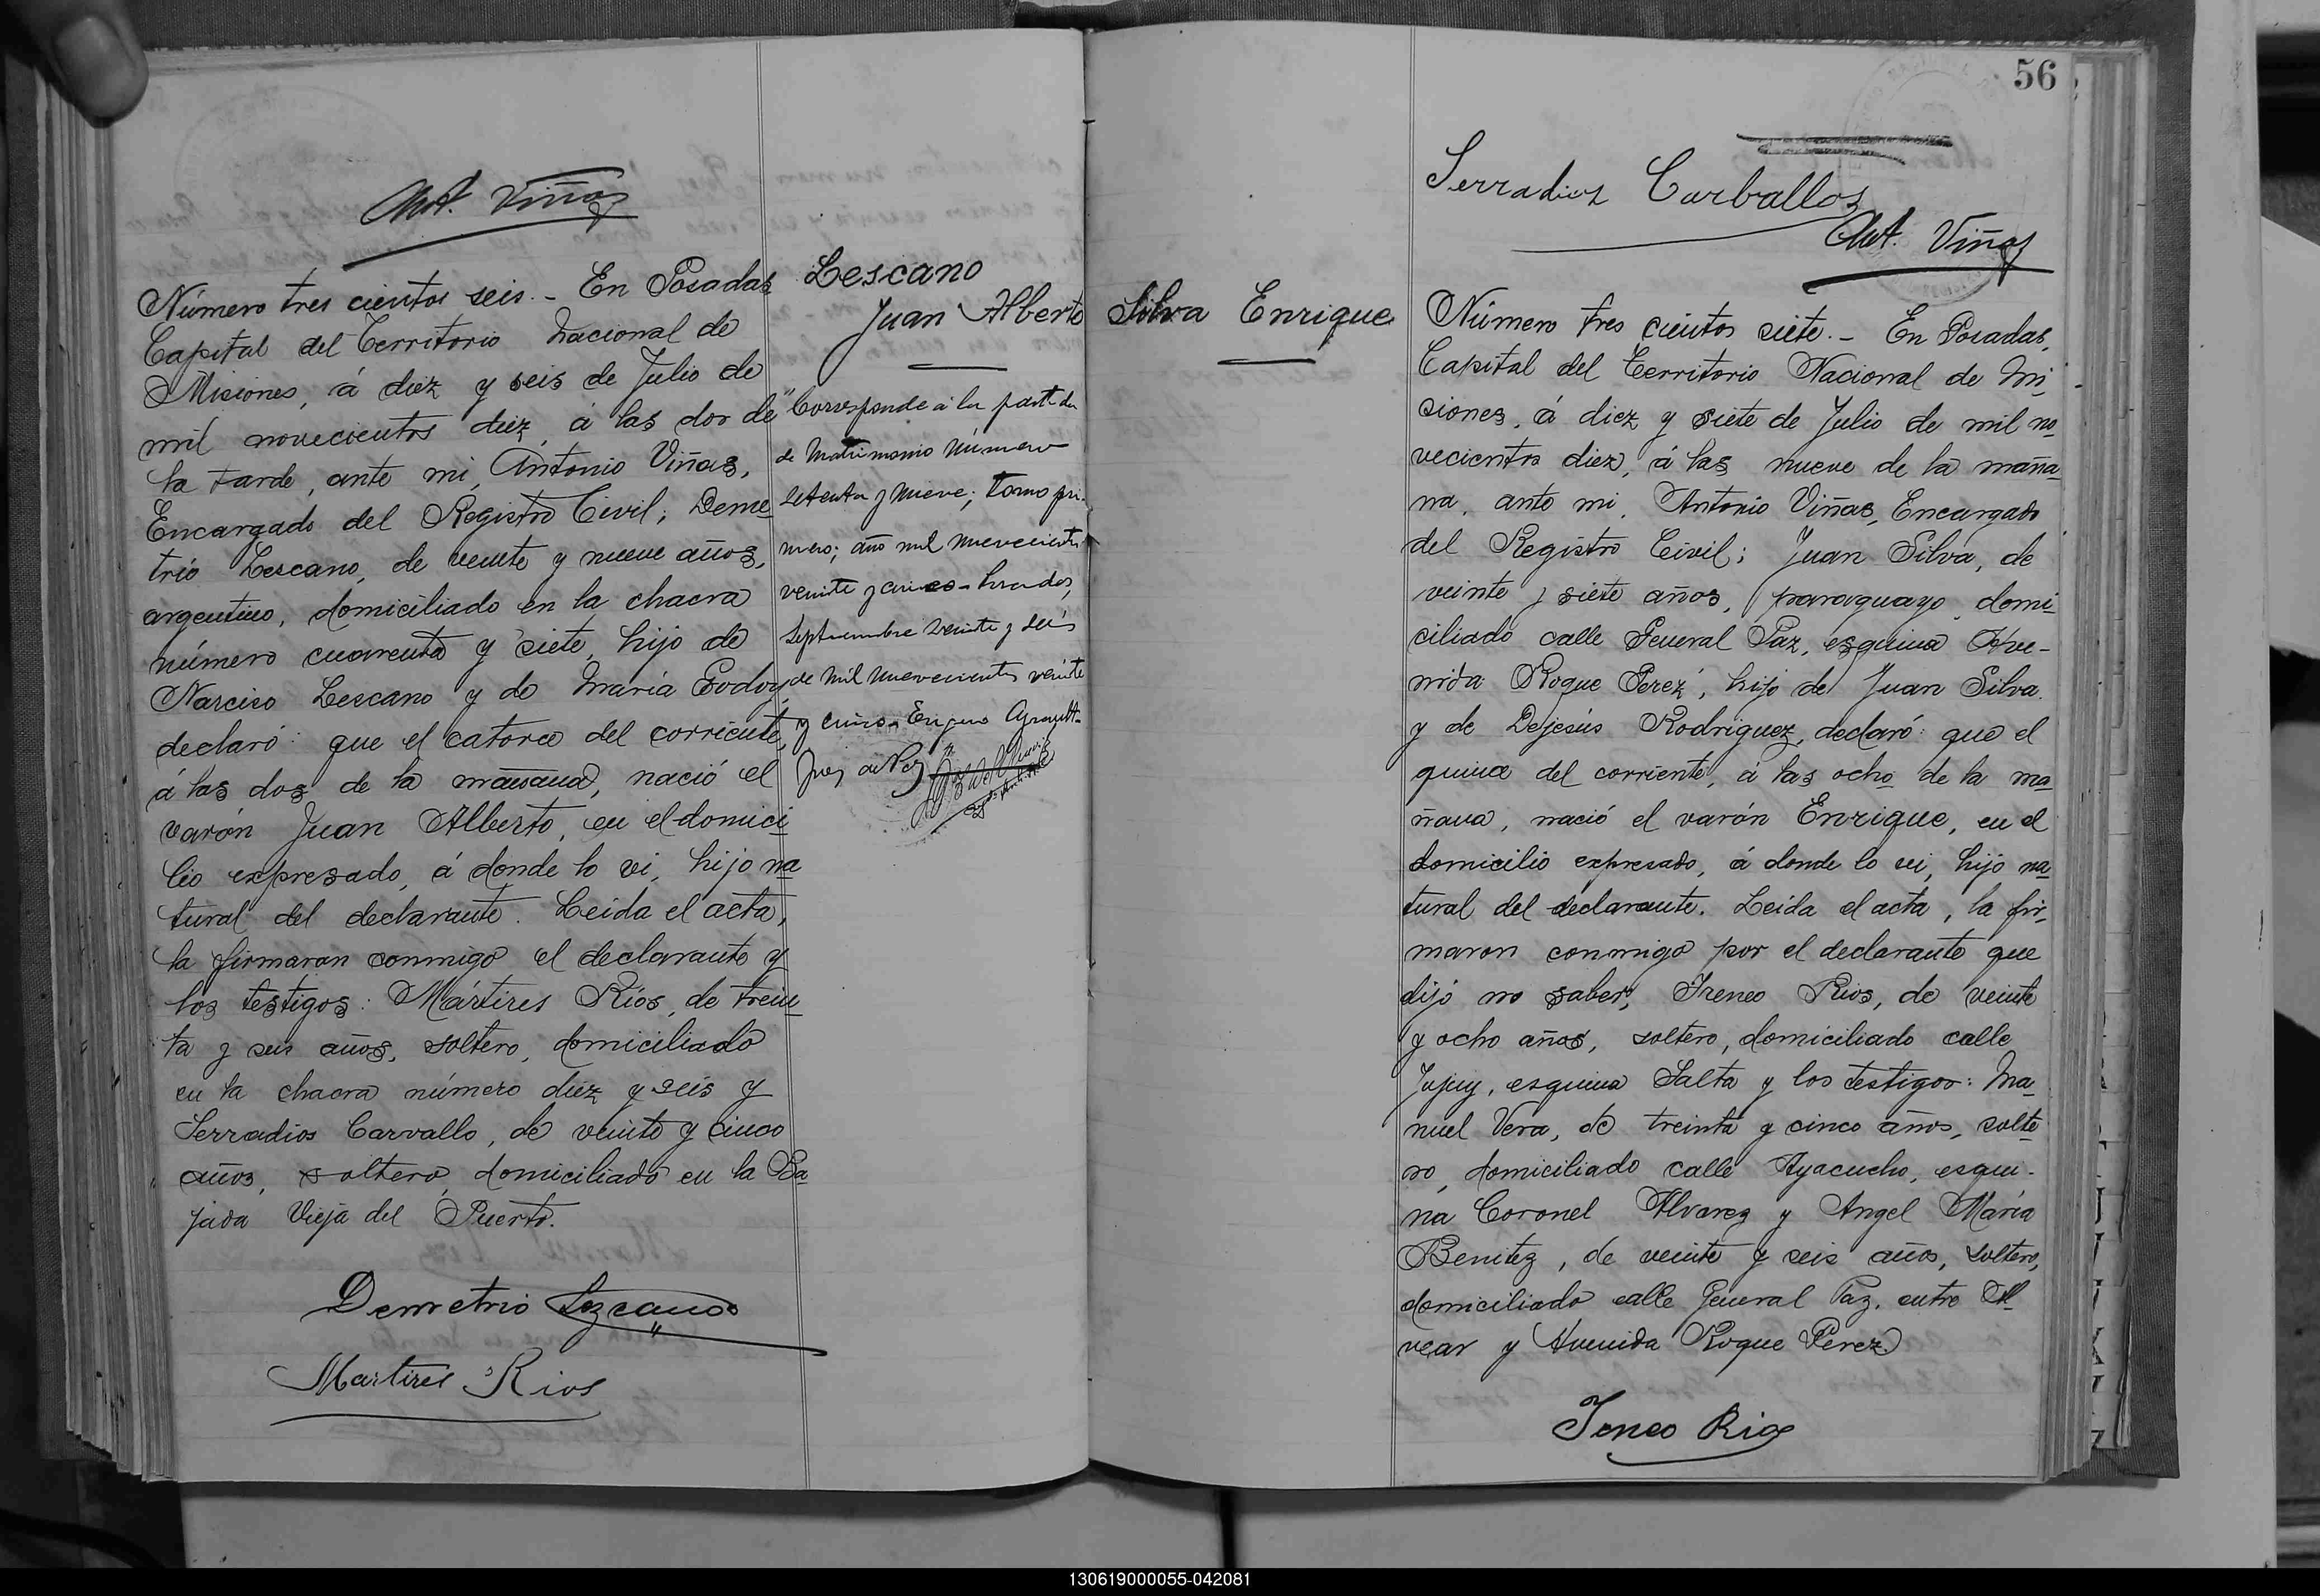 Ant. Viñas
Número tres cientos seis.- En Posadas
Capital del Territorio Nacional de
Misiones, á diez y seis de Julio de
mil novecientos diez, á las dos de
la tarde, ante mi, Antonio Viñas,
Encargado del Registro Civil; Deme
trio Lescano, de veinte y nueve años,
argentino, domiciliado en la chacra
número cuarenta y siete, hijo de
Narciso Lescano y de María Godoy
declaró: que el catorce del corriente,
á las dos de la mañana, nació el
varón Juan Alberto, en el domici
lio expresado, á donde lo vi, hijo na
tural del declarante. Leida el acta,
la firmaron conmigo el declarante y
los testigos: Mártires Ríos, de trein
ta y seis años, soltero, domiciliado
en la chacra número diez y seis y
Serradios Carvallo, de veinte y cinco
años, soltero, domiciliado en la Ba
jada Vieja del Puerto.
Demetrio Lezcano
Martires Rios
Lescano
Juan Alberto
Corresponde á la partida
de Matrimonio Número
setenta y nueve; tomo pri-
mero; año mil nuevecientos
veinte y cinco - Posadas,
Septiembre veinte y seis
de mil nuevecientos veinte
y cinco -
Juez de Paz
56
Serradios Carballos
Ant. Viñas
Silva Enrique
Número tres cientos siete.- En Posadas,
Capital del Territorio Nacional de Mi
siones, á diez y siete de Julio de mil no
vecientos diez, á las nueve de la maña
na, ante mi, Antonio Viñas, Encargado
del Registro Civil; Juan Silva, de
veinte y siete años, paraguayo, domi
ciliado calle General Paz, esquina Ave-
nida Roque Perez, hijo de Juan Silva
y de Dejesús Rodriguez, declaró: que el
quince del corriente, á las ocho de la ma
ñana, nació el varón Enrique, en el
domicilio expresado, á donde lo vi, hijo na
tural del declarante. Leida el acta, la fir
maron conmigo por el declarante que
dijó no saber, Ireneo Rios, de veinte
y ocho años, soltero, domiciliado calle
Jujuy, esquina Salta y los testigos: Ma
nuel Vera, de treinta y cinco años, solte
ro, domiciliado calle Ayacucho, esqui-
na Coronel Alvarez y Angel María
Benitez, de veinte y seis años, soltero,
domiciliado calle General Paz, entre Al
vear y Avenida Roque Perez.
Ireneo Rios
130619000055-042081